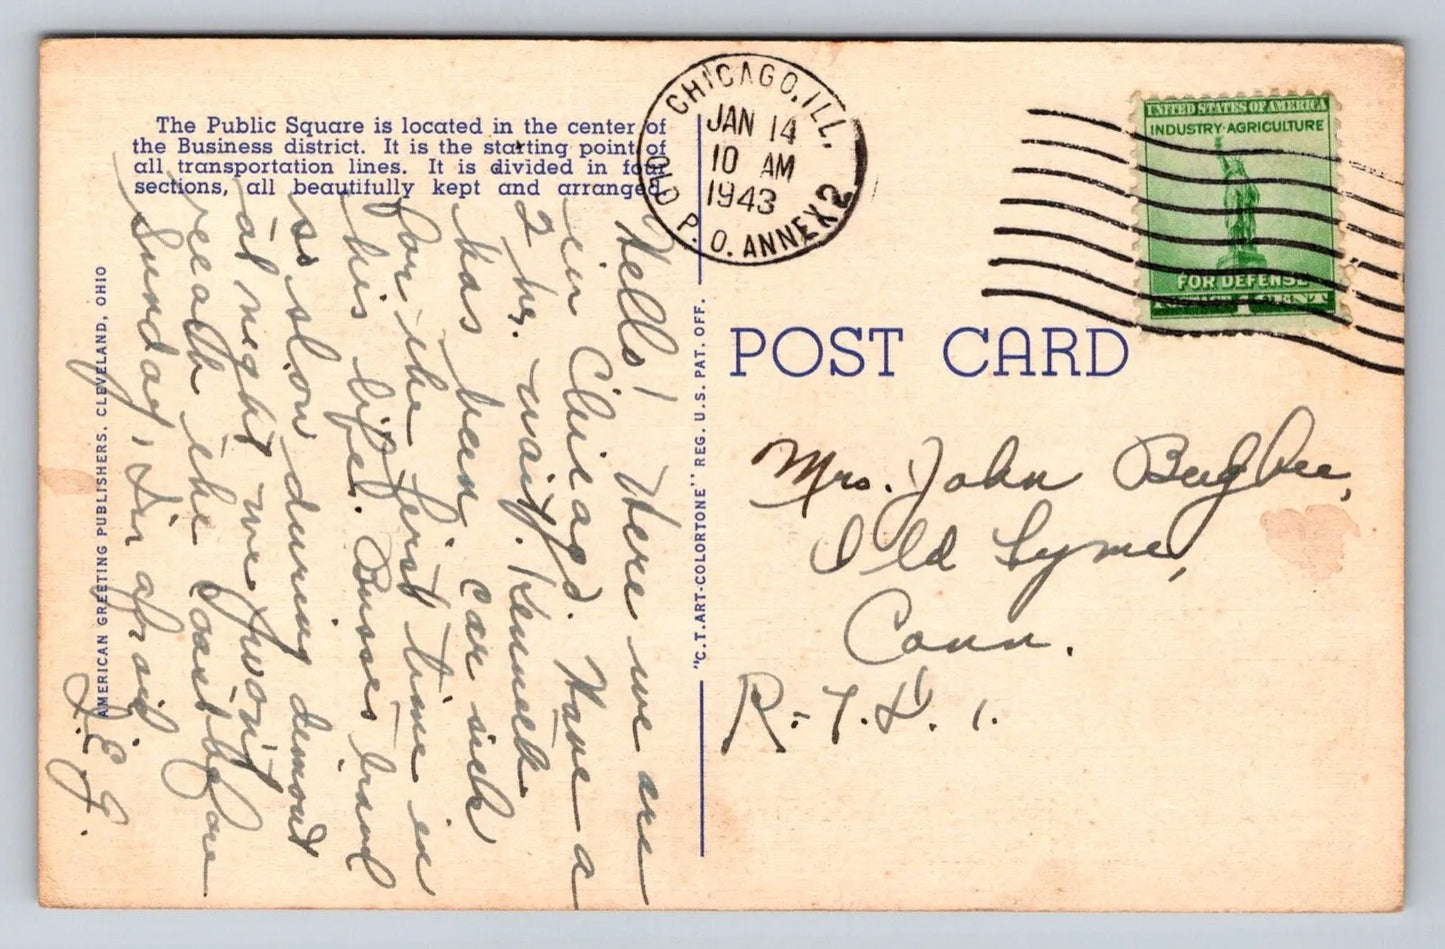 The Public Square is located in the center of
the Business district. It is the starting point of
all transportation lines. It is divided in four
sections, all beautifully kept and arranged.
AMERICAN GREETING PUBLISHERS, CLEVELAND, OHIO
Hello! Here we are
in Chicago. Have a
2 hr. wait. Kenneth
has been car sick
for the first time in
his life. Busses travel
so slow during dimout
at night we won't
reach the coast before
Sunday, I'm afraid
"C.T. ART-COLORTONE" REG. U.S. PAT. OFF.
CHICAGO, ILL.
JAN 14
10 AM
1943
P. O. ANNEX 2
UNITED STATES OF AMERICA
INDUSTRY·AGRICULTURE
FOR DEFENSE
1 CENT
POST CARD
Mrs. John Bugbee,
Old Lyme,
Conn.
R.F.D. 1.